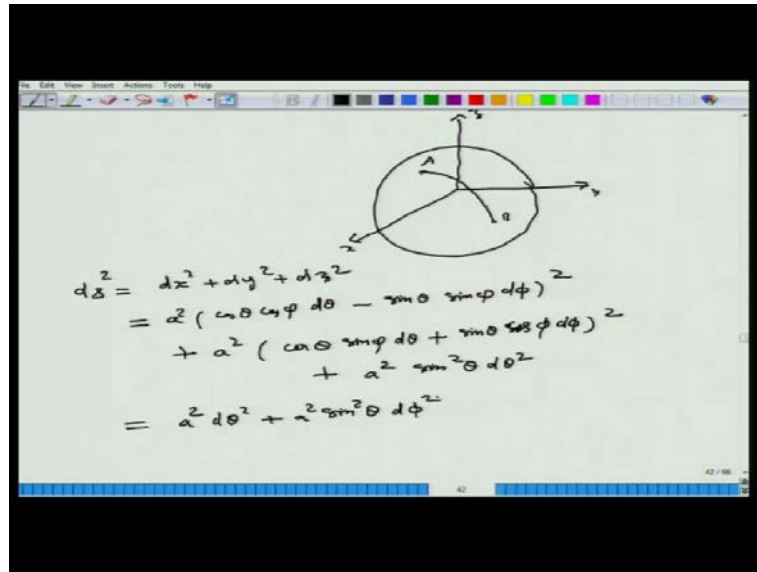 File Edit View Insert Actions Tools Help
z
A
y
B
x
ds² = dx² + dy² + dz²
= a² (cosθ cosφ dθ − sinθ sinφ dφ)²
+ a² (cosθ sinφ dθ + sinθ cosφ dφ)²
+ a² sin²θ dθ²
= a² dθ² + a² sin²θ dφ²
42 / 66
42